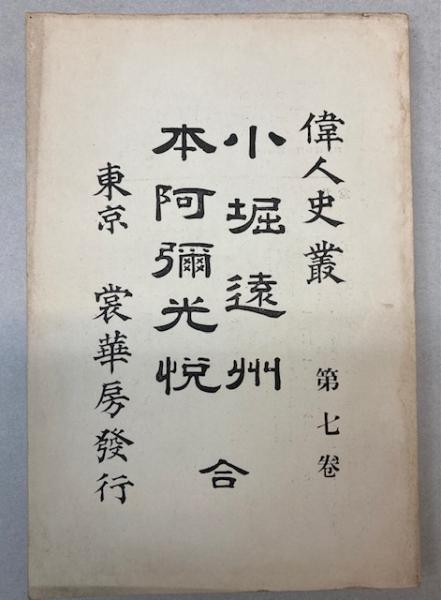 偉人史叢 第七卷
小堀遠州
本阿彌光悅 合
東京 裳華房發行